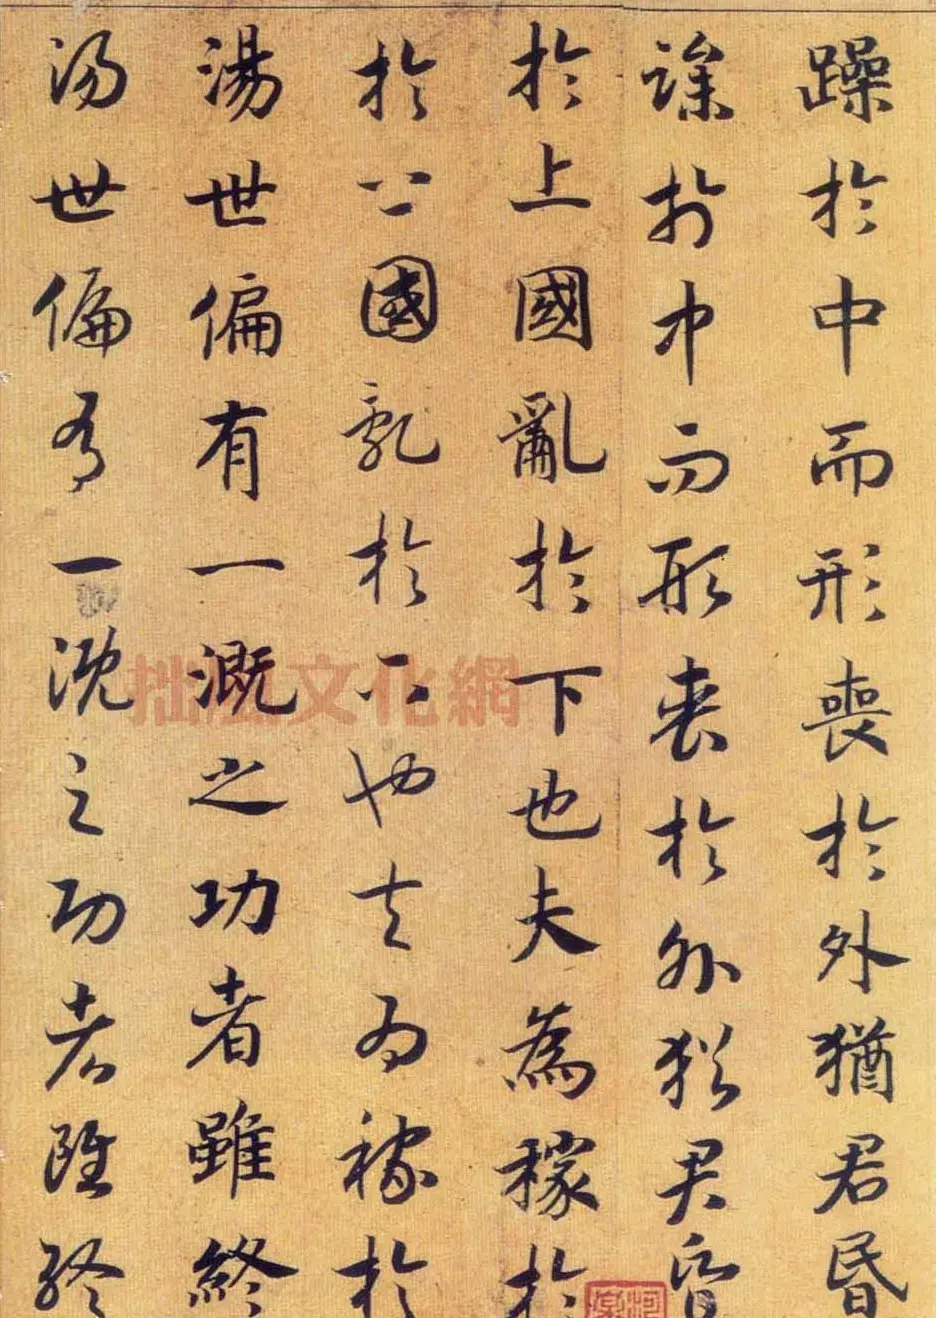 躁於中而形喪於外猶君昏
躁於中而形喪於外猶君昏
於上國亂於下也夫為稼於
於上國亂於下也夫為稼於
湯世偏有一溉之功者雖終
湯世偏有一溉之功者雖終
文化網